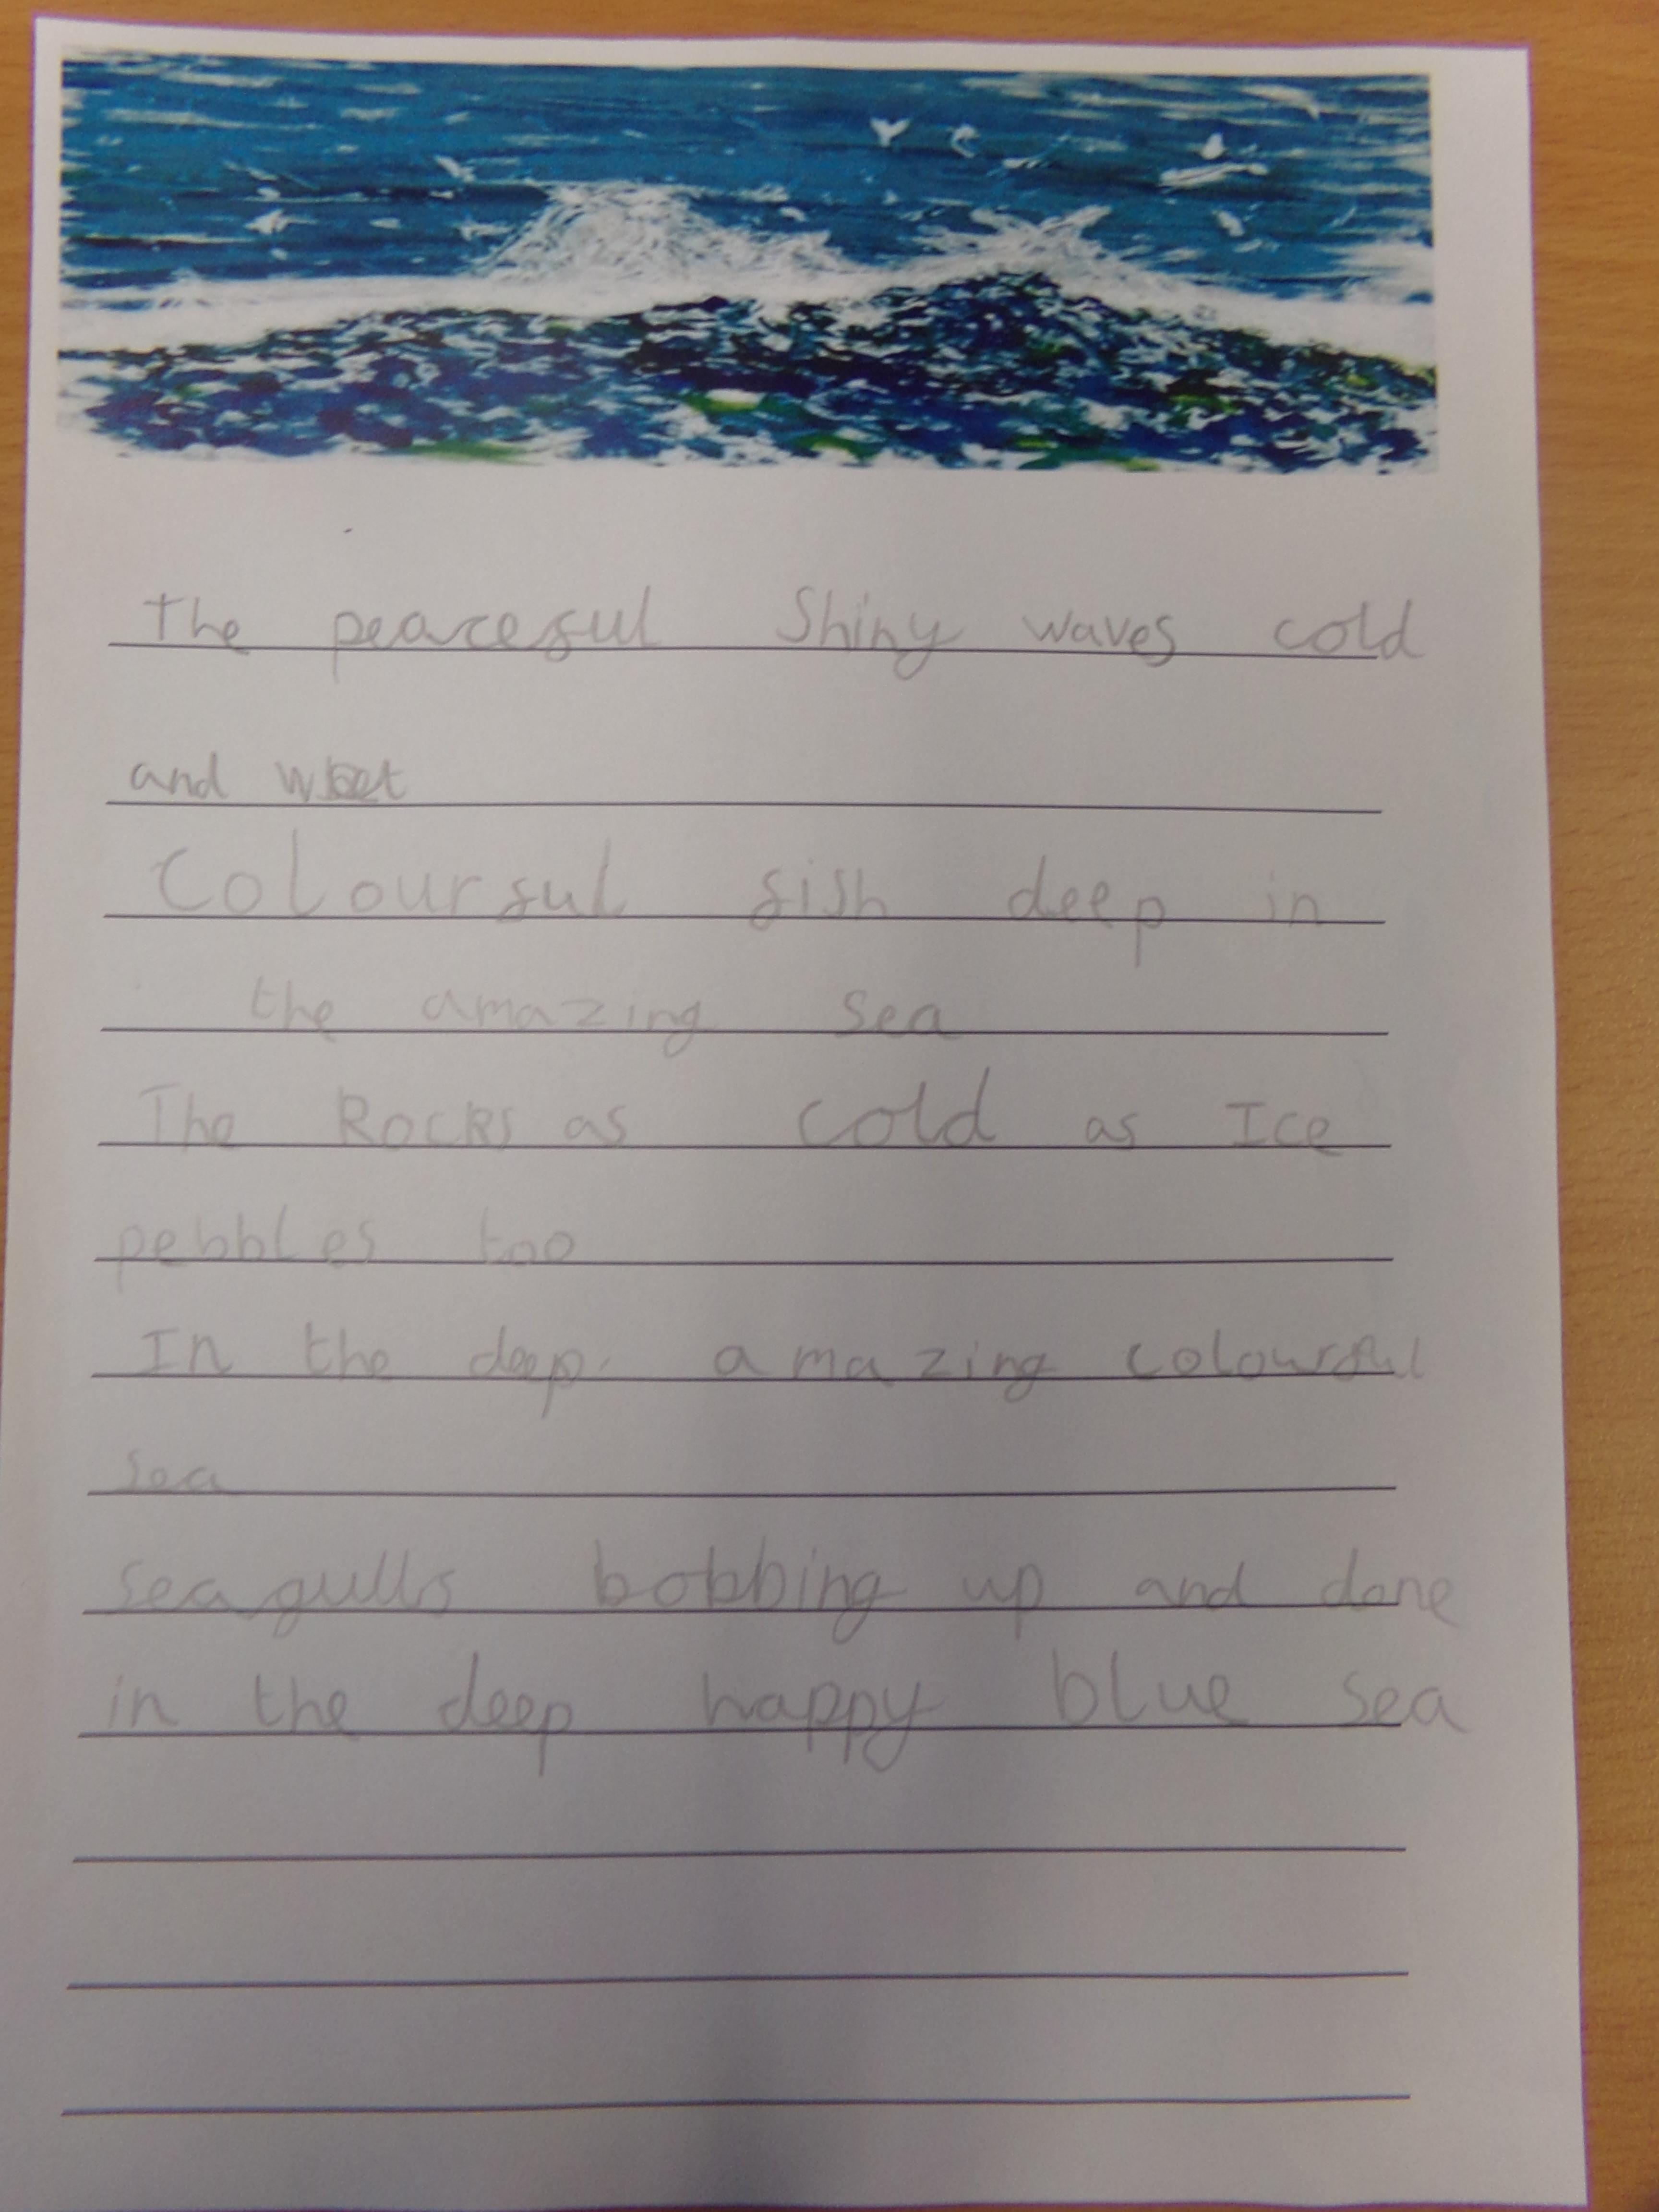 The peaceful Shiny waves cold
and wet
Colourful fish deep in
the amazing sea
The Rocks as cold as Ice
pebbles too
In the deep. amazing colourful
sea
seagulls bobbing up and done
in the deep happy blue sea